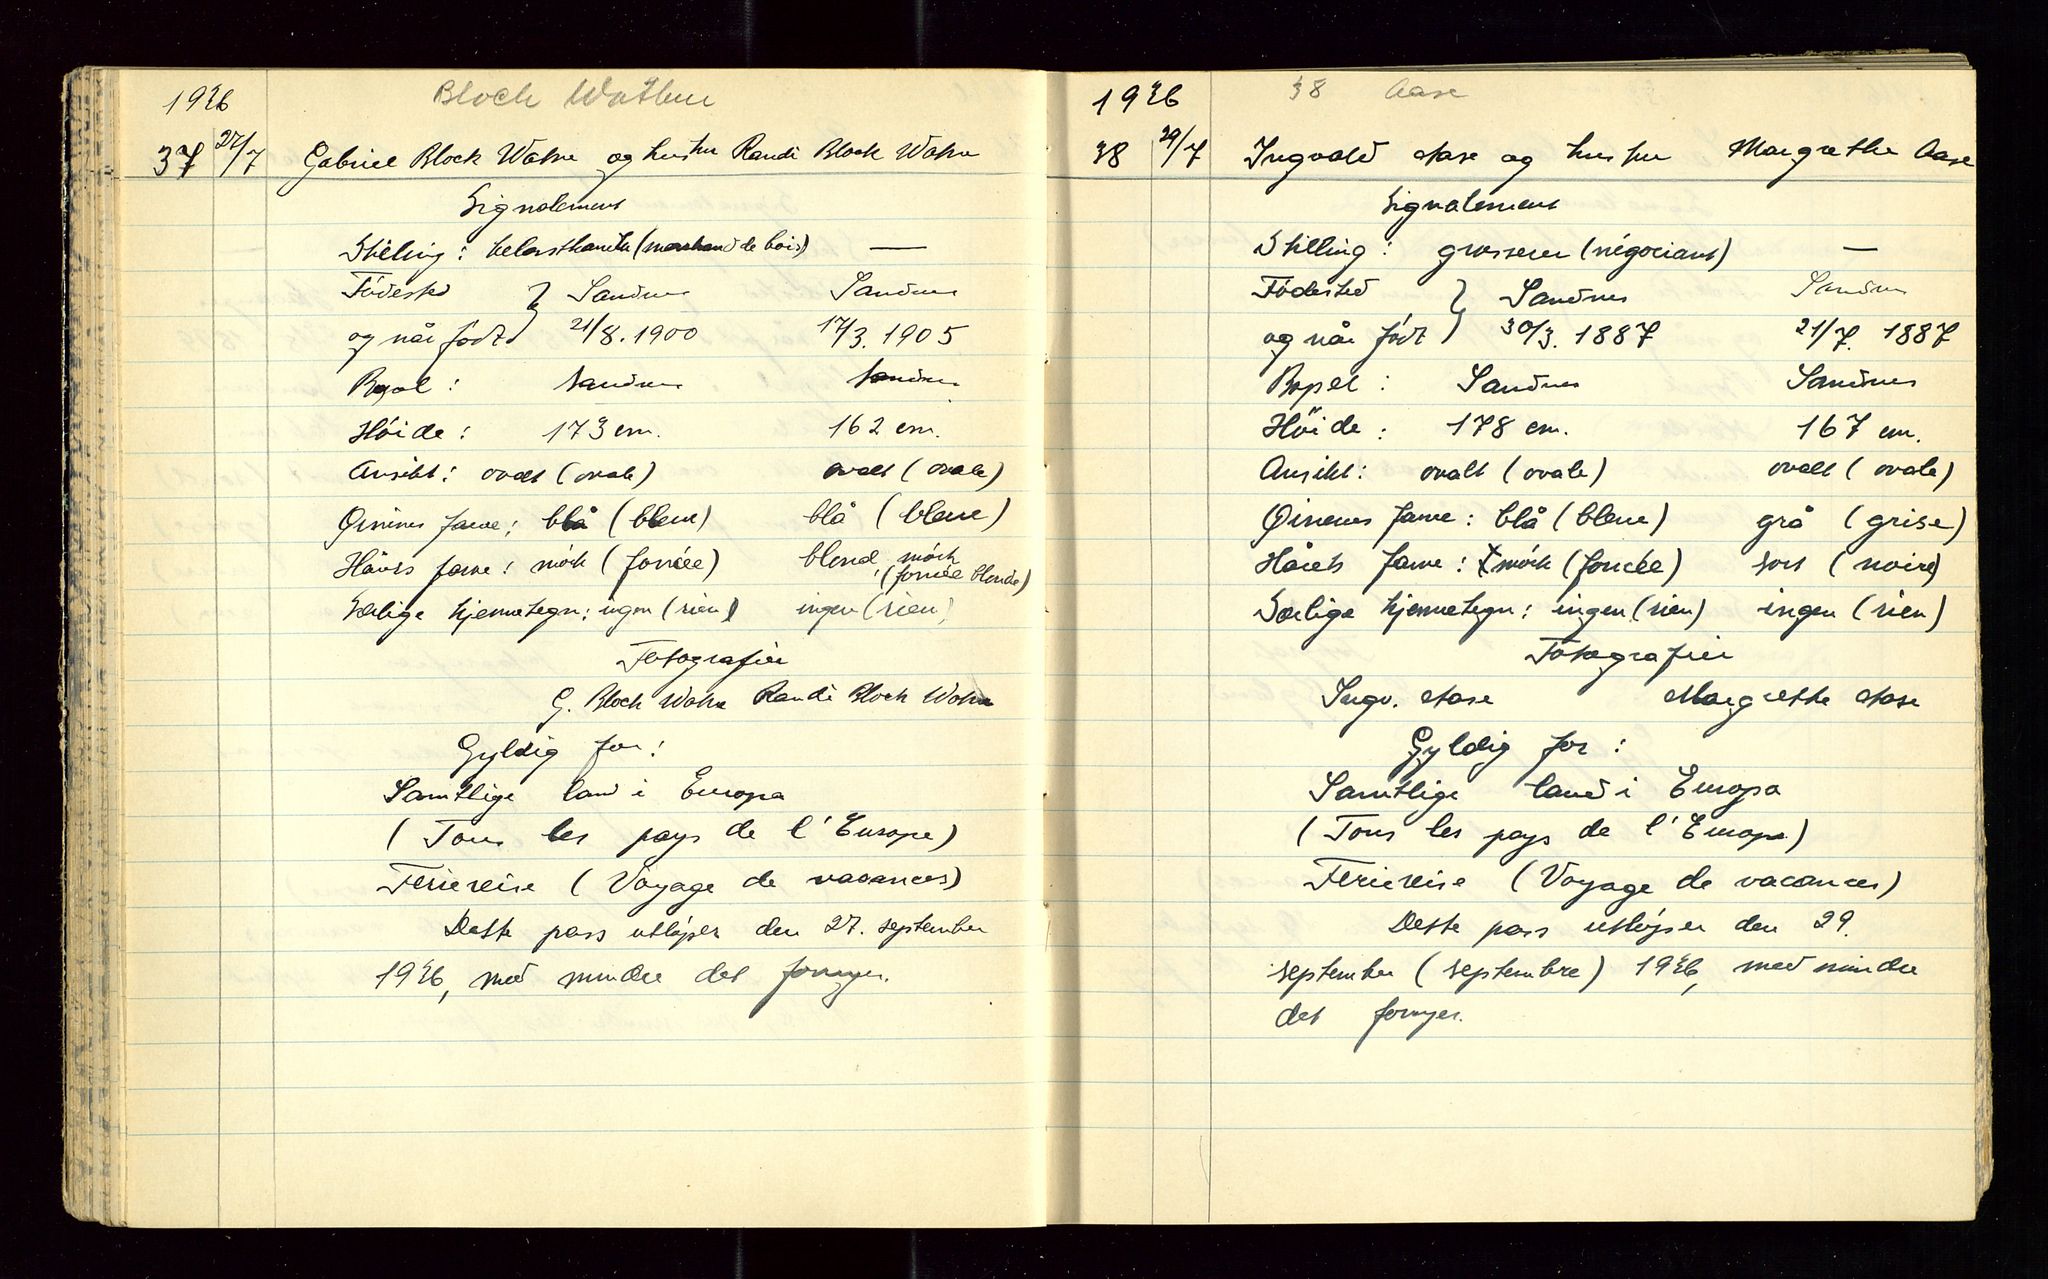 1936 Bloch Wathne
37 27/7 Gabriel Block Watne og hustru Randi Block Watne
Signalement
Stilling: trelasthandler (marchand de bois) —
Födested } Sandnes Sandnes
og når født } 21/8. 1900 17/3. 1905
Bopel: Sandnes Sandnes
Höide: 173 cm. 162 cm.
Ansikt: ovalt (ovale) ovalt (ovale)
Øinenes farve: blå (bleue) blå (bleue)
Hårets farve: mörk (foncée) blond, mörk (foncée blonde)
Særlige kjennetegn: ingen (rien) ingen (rien)
Fotografier
G. Block Watne Randi Block Watne
Gyldig for:
Samtlige land i Europa
(Tous les pays de l'Europe)
Feriereise (Voyage de vacances)
Dette pass utløper den 27. september
1936, med mindre det fornyes.
1936 38 Aase
38 29/7 Ingvald Aase og hustru Margrethe Aase
Signalement
Stilling: grosserer (négociant) —
Födested } Sandnes Sandnes
og når född } 30/3. 1887 21/7. 1887
Bopel: Sandnes Sandnes
Höide: 178 cm. 167 cm.
Ansikt: ovalt (ovale) ovalt (ovale)
Øinenes farve: blå (bleue) grå (grise)
Hårets farve: mörk (foncée) sort (noire)
Særlige kjennetegn: ingen (rien) ingen (rien)
Fotografier
Ingv. Aase Margrethe Aase
Gyldig for:
Samtlige land i Europa
(Tous les pays de l'Europe)
Feriereise (Voyage de vacances)
Dette pass utløper den 29.
september (septembre) 1936, med mindre
det fornyes.